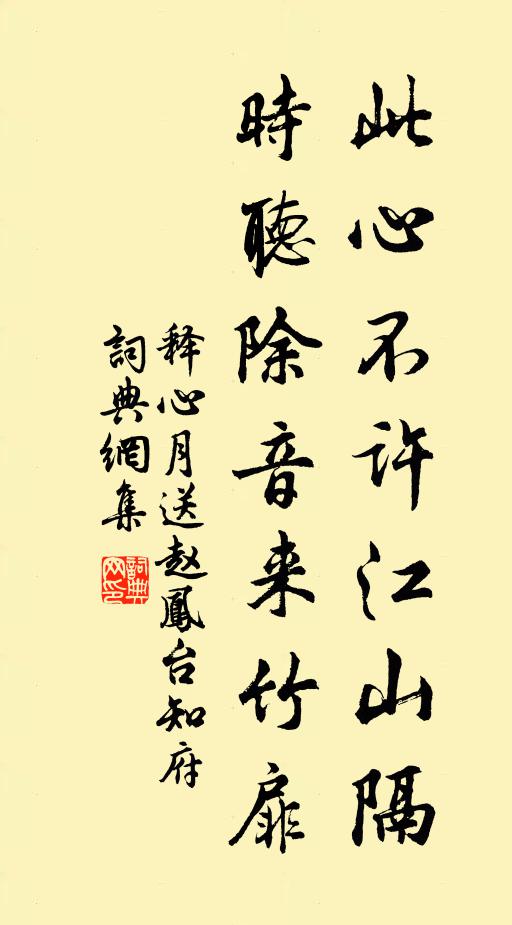 此心不许江山隔
時聽除音来竹扉
释心月送赵鳳台知府
詞典網集
詞典网印